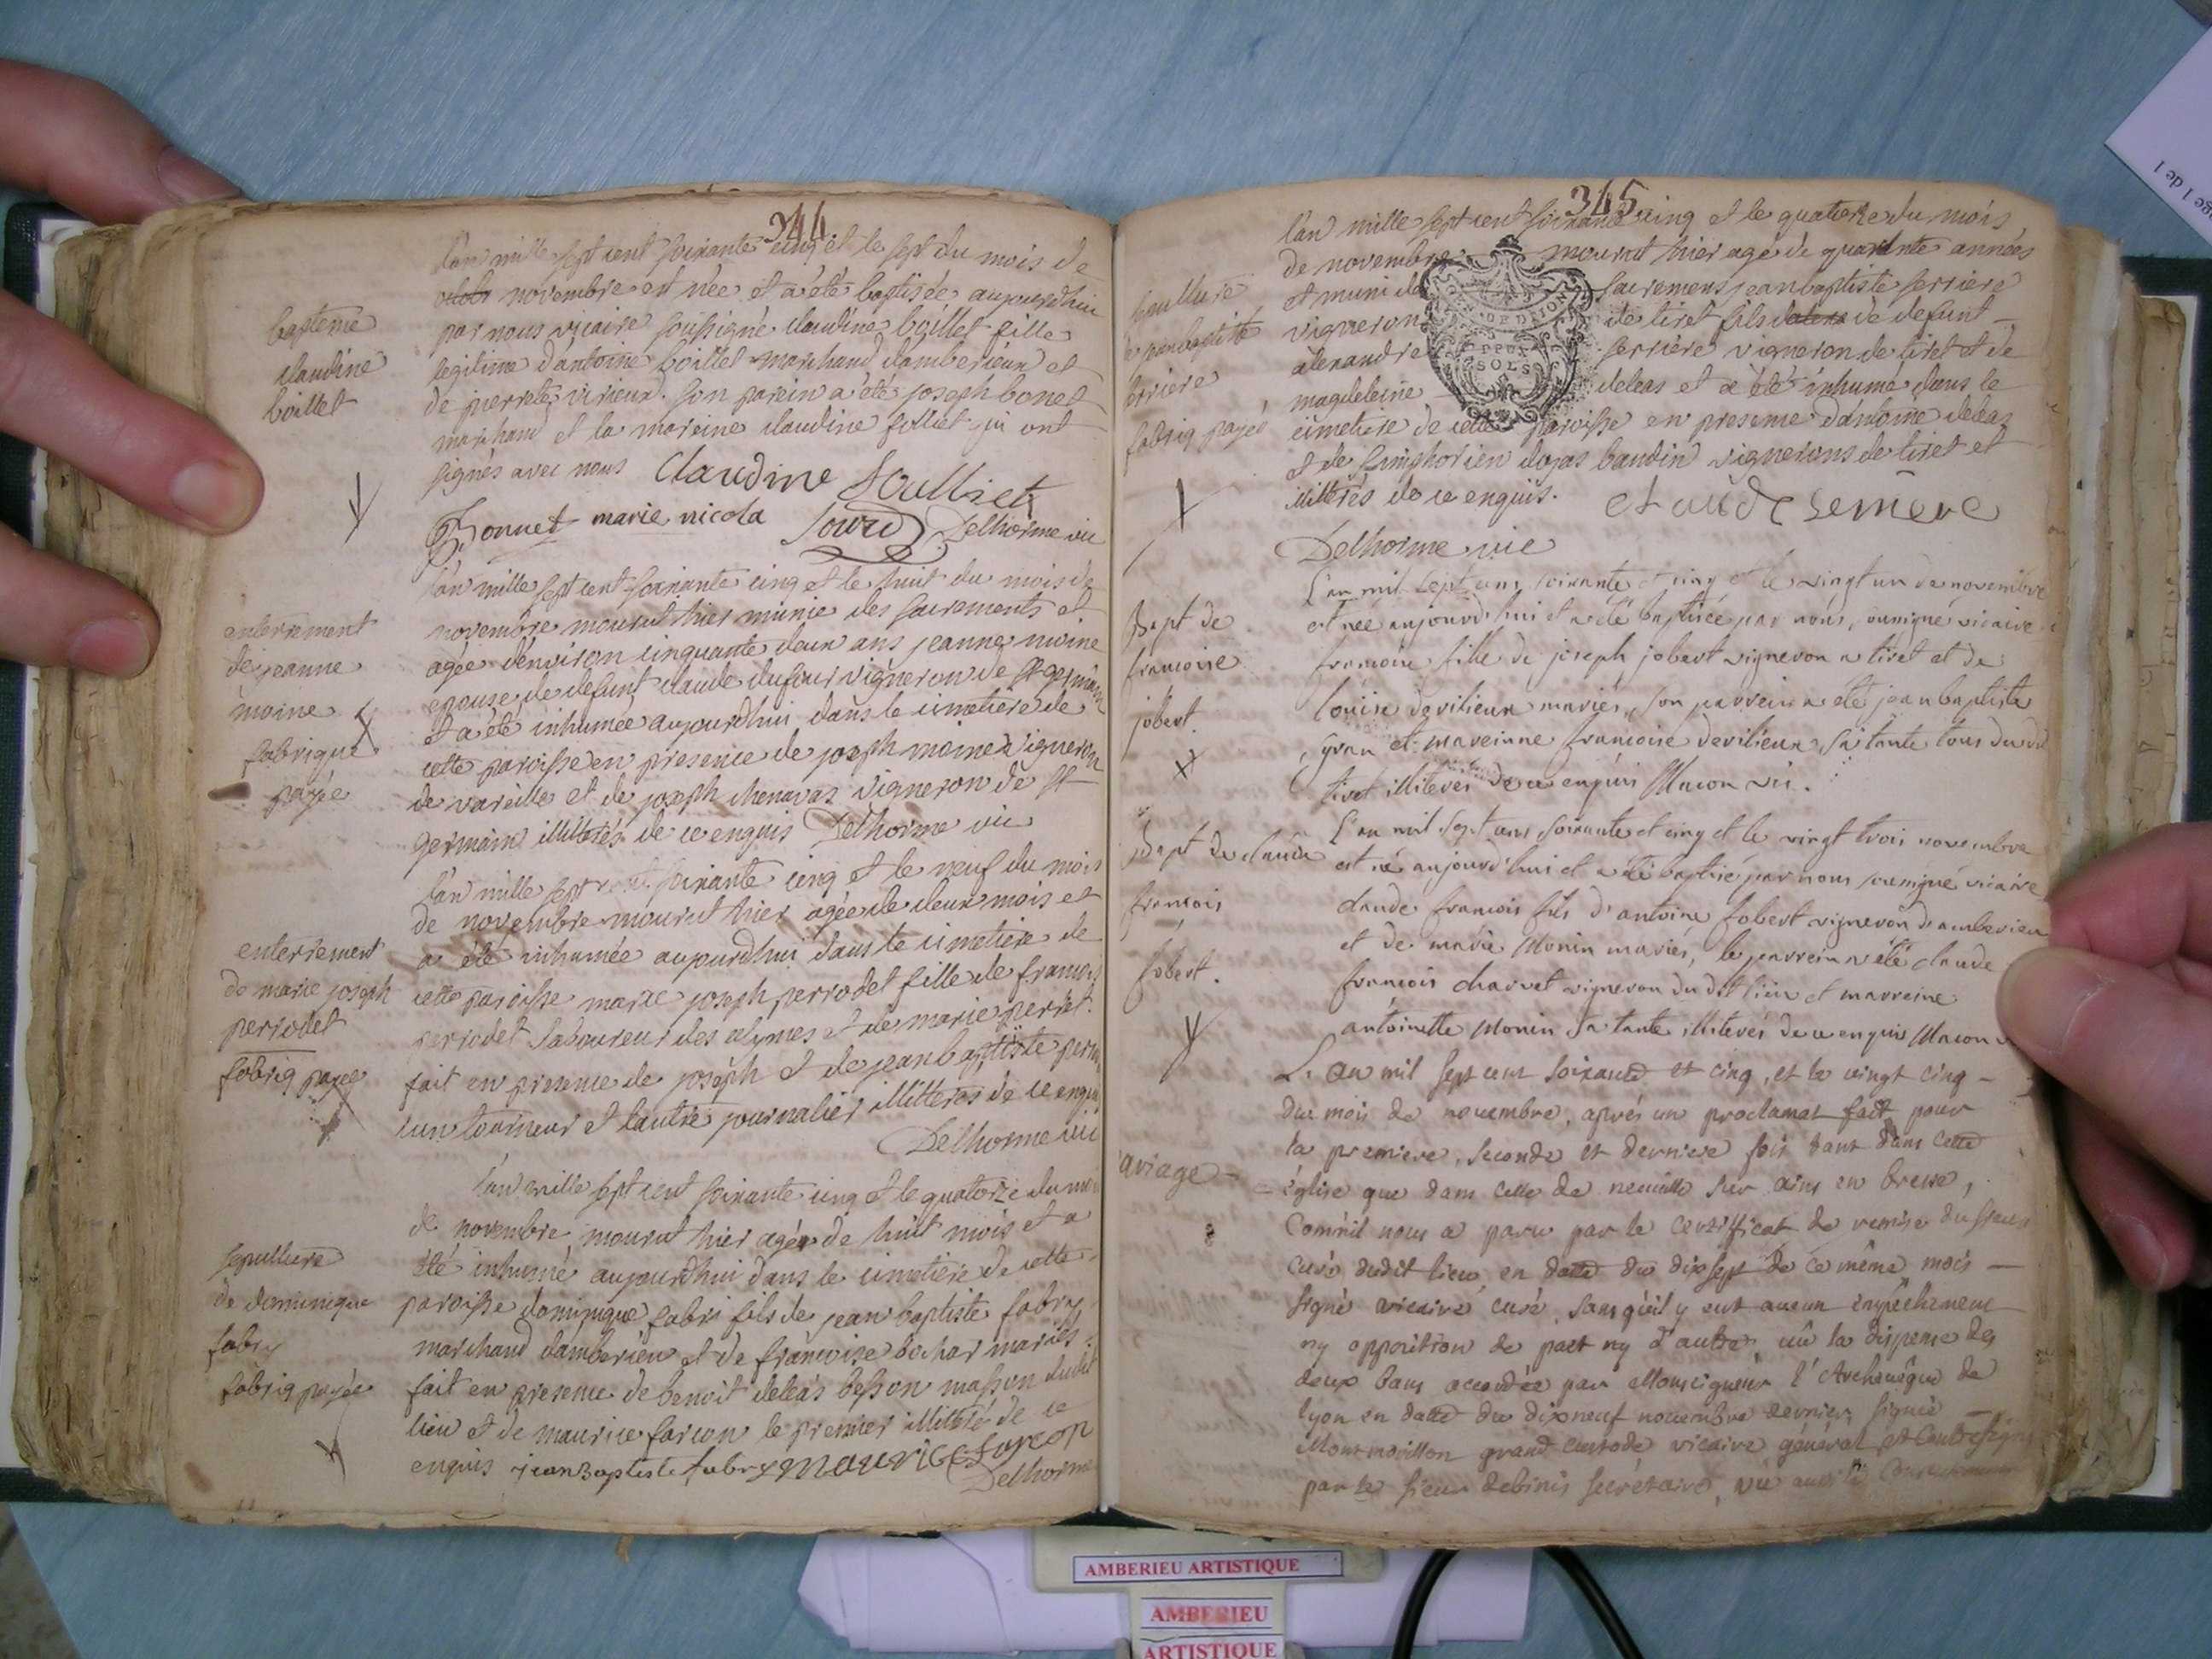 344
l'an mille sept cent soixante cinq et le sept du mois de
novembre est née et a été baptisée aujourdhui
par nous vicaire soussigné claudine boillet fille
legitime d'antoine boillet marchand d'amberieux et
de pierrette virieux. son parein a été joseph bonet
marchand et la mareine claudine folliet qui ont
signés avec nous Claudine Soulliet
Bonnet marie nicola Delhorme vic
baptême
claudine
boillet
l'an mille sept cent soixante cinq et le huit du mois de
novembre mourut hier munie des sacrements et
agée d'environ cinquante deux ans jeanne moine
epouse de defunt claude dufour vigneron de st germain
et a été inhumée aujourdhui dans le cimetiere de
cette paroisse en presence de joseph moine vigneron
de vareille et de joseph chenavas vigneron de st
germain illitterés de ce enquis Delhorme vic
enterrement
de jeanne
moine
fabrique
payée
l'an mille sept cent soixante cinq et le neuf du mois
de novembre mourut hier agée de deux mois et
a été inhumée aujourdhui dans le cimetiere de
cette paroisse marie joseph perrodet fille de francois
perrodet laboureur des alymes et de marie perret.
fait en presence de joseph et de jean baptiste
l'un tourneur et l'autre journalier illitteres de ce enquis
Delhorme vic
enterrement
de marie joseph
perrodet
fabriq payée
l'an mille sept cent soixante cinq et le quatorze du mois
de novembre mourut hier agé de huit mois et a
été inhumé aujourdhui dans le cimetiere de cette
paroisse dominique fabri fils de jean baptiste fabry
marchand d'amberieu et de francoise bochar mariés
fait en presence de benoit deleas besson masson dudit
lieu et de maurice farcon le premier illitteré de ce
enquis jean Baptiste fabry maurice farcon
Delhorme
sepulture
de dominique
fabry
fabriq payée
345
l'an mille sept cent soixante cinq et le quatorze du mois
de novembre mourut hier agé de quarante années
et muni de sacremens jean baptiste serriere
vigneron de tiret fils de defunt
alexandre serriere vigneron de tiret et de
magdeleine deleas et a été inhumé dans le
cimetiere de cette paroisse en presence d'antoine deleas
et de simphorien baudin vignerons de tiret et
illitterés de ce enquis.
Delhorme vic
de jean baptiste
fabriq payée
SOLS
L'an mil sept cens soixante et cinq et le vingt un de novembre
est née aujourd'hui et a été baptisée par nous, soussigné vicaire
francoise fille de joseph jobert vigneron a tiret et de
louise devilieux mariés, son parrein a été jean baptiste
gyran et mareinne francoise devilieux sa tante tous dudit
tiret illiterés de ce enquis Macon vic.
Bapt de
francoise
jobert.
L'an mil sept cens soixante et cinq et le vingt trois novembre
est né aujourd'hui et a été baptisé par nous soussigné vicaire
claude francois fils d'antoine jobert vigneron d'amberieu
et de marie Monin mariés, le parrein a été claude
francois charvet vigneron du dit lieu et marreine
antoinette Monin sa tante illiterés de ce enquis Macon
Bapt de claude
francois
jobert.
L'an mil sept cent soixante et cinq, et le vingt cinq
du mois de novembre, aprés un proclamat fait pour
la premiere, seconde et derniere fois tant dans cette
église que dans celle de neuville sur ains en bresse,
comm'il nous a paru par le certifficat de remise du sieur
curé dudit lieu en datte du dixsept de ce même mois
signé curé, sans qu'il y eut aucun empêchement
ny opposition de part ny d'autre, vû la dispense des
deux bans accordée par Monseigneur l'Archevêque de
lyon en datte du dixneuf novembre dernier, signée
Montmorillon grand custode vicaire général et contresigné
par le sieur debinis secrétaire, vû aussi
ariage
AMBERIEU ARTISTIQUE
AMBERIEU
ARTISTIQUE